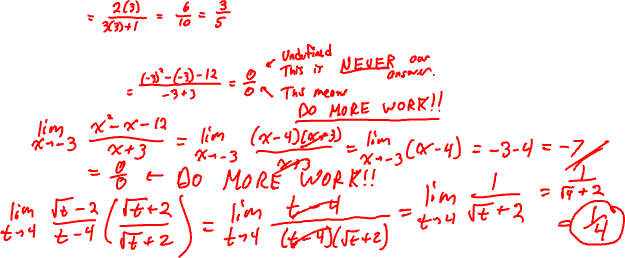 = 2(3)/(3(3)+1) = 6/10 = 3/5
= ((-3)²-(-3)-12)/(-3+3) = 0/0 ← Undefined This is NEVER our answer.
← This means DO MORE WORK!!
lim x→-3 (x²-x-12)/(x+3) = lim x→-3 ((x-4)(x+3))/(x+3) = lim x→-3 (x-4) = -3-4 = -7
= 0/0 ← DO MORE WORK!!
lim t→4 (√t-2)/(t-4) ((√t+2)/(√t+2)) = lim t→4 (t-4)/((t-4)(√t+2)) = lim t→4 1/(√t+2) = 1/(√4+2)
= 1/4